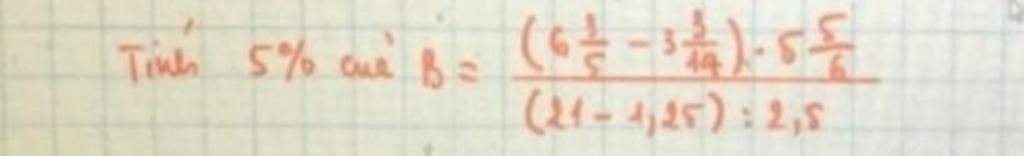 Tính 5% của B = \frac{(6\frac{3}{5} - 3\frac{3}{14}) \cdot 5\frac{5}{6}}{(21 - 1,25) : 2,5}